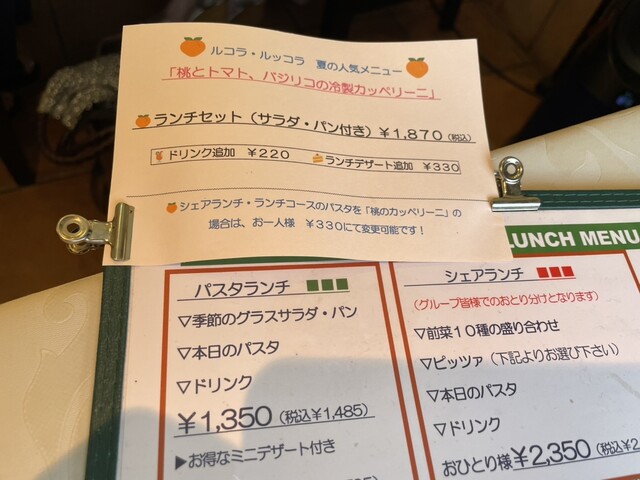 ルコラ・ルッコラ 夏の人気メニュー
「桃とトマト、バジリコの冷製カッペリーニ」
ランチセット（サラダ・パン付き）￥1,870（税込）
ドリンク追加 ￥220 ランチデザート追加 ￥330
シェアランチ・ランチコースのパスタを「桃のカッペリーニ」の
場合は、お一人様 ￥330にて変更可能です！
LUNCH MENU
パスタランチ
▽季節のグラスサラダ・パン
▽本日のパスタ
▽ドリンク
￥1,350（税込￥1,485）
▶お得なミニデザート付き
シェアランチ
（グループ皆様でのおとり分けとなります）
▽前菜１０種の盛り合わせ
▽ピッツァ（下記よりお選び下さい）
▽本日のパスタ
▽ドリンク
おひとり様￥2,350（税込￥2